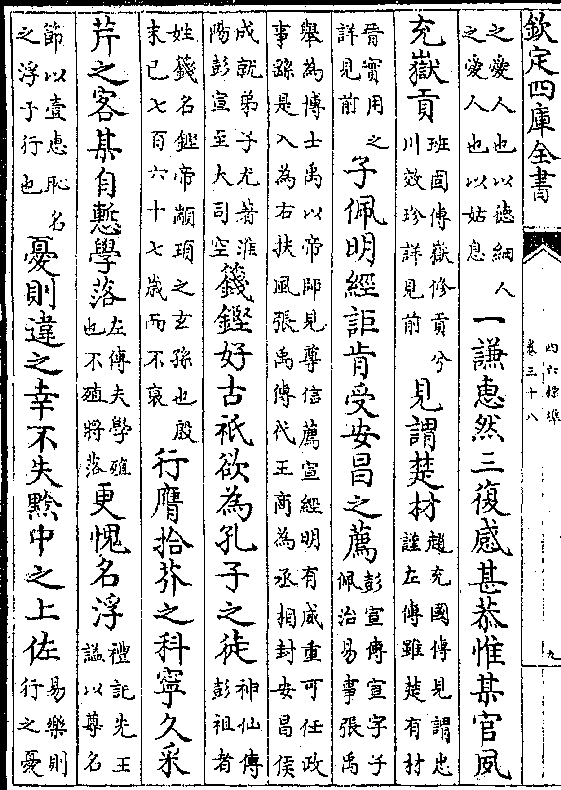 欽定四庫全書
四六標準
卷三十八
九
之愛人也以德細人
之愛人也以姑息
一謙惠然三復感甚恭惟某官夙
充嶽貢
班固傳嶽修貢兮
川效珍詳見前
見謂楚材
趙充國傳見謂忠
謹左傳雖楚有材
晉實用之
詳見前
子佩明經詎肯受安昌之薦
彭宣傳宣字子
佩治易事張禹
舉為博士禹以帝師見尊信薦宣經明有威重可任政
事繇是入為右扶風張禹傳代王商為丞相封安昌侯
成就弟子尤著淮
陽彭宣至大司空
籛鏗好古祇欲為孔子之徒
神仙傳
彭祖者
姓籛名鏗帝顓頊之玄孫也殷
末已七百六十七歲而不衰
行膺拾芥之科寧久采
芹之客某自慙學落
左傳夫學殖
也不殖將落
更愧名浮
禮記先王
諡以尊名
節以壹惠恥名
之浮于行也
憂則違之幸不失黔中之上佐
易樂則
行之憂